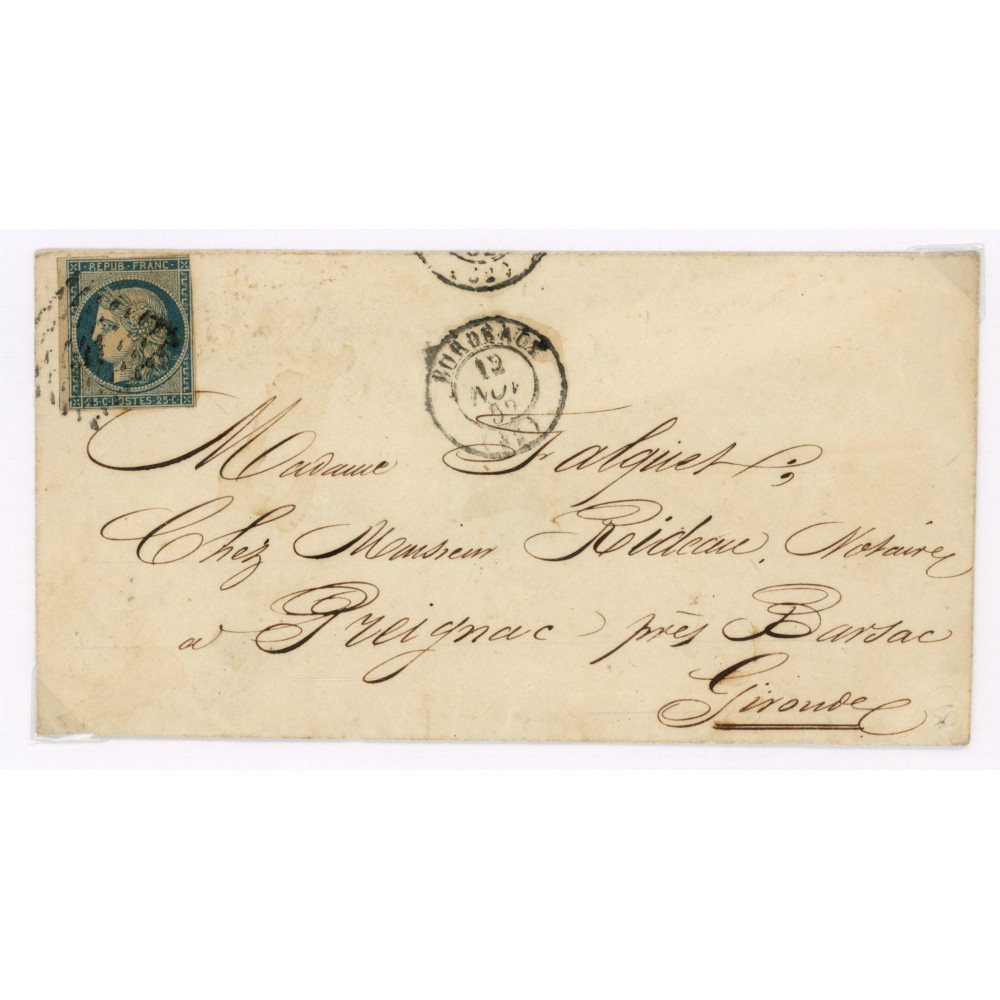 REPUB·FRANC·
25·C·POSTES·25·C
BORDEAUX
12
NOV
52
(32)
Madame Falguet,
Chez Monsieur Rideau, Notaire
à Preignac près Barsac
Gironde